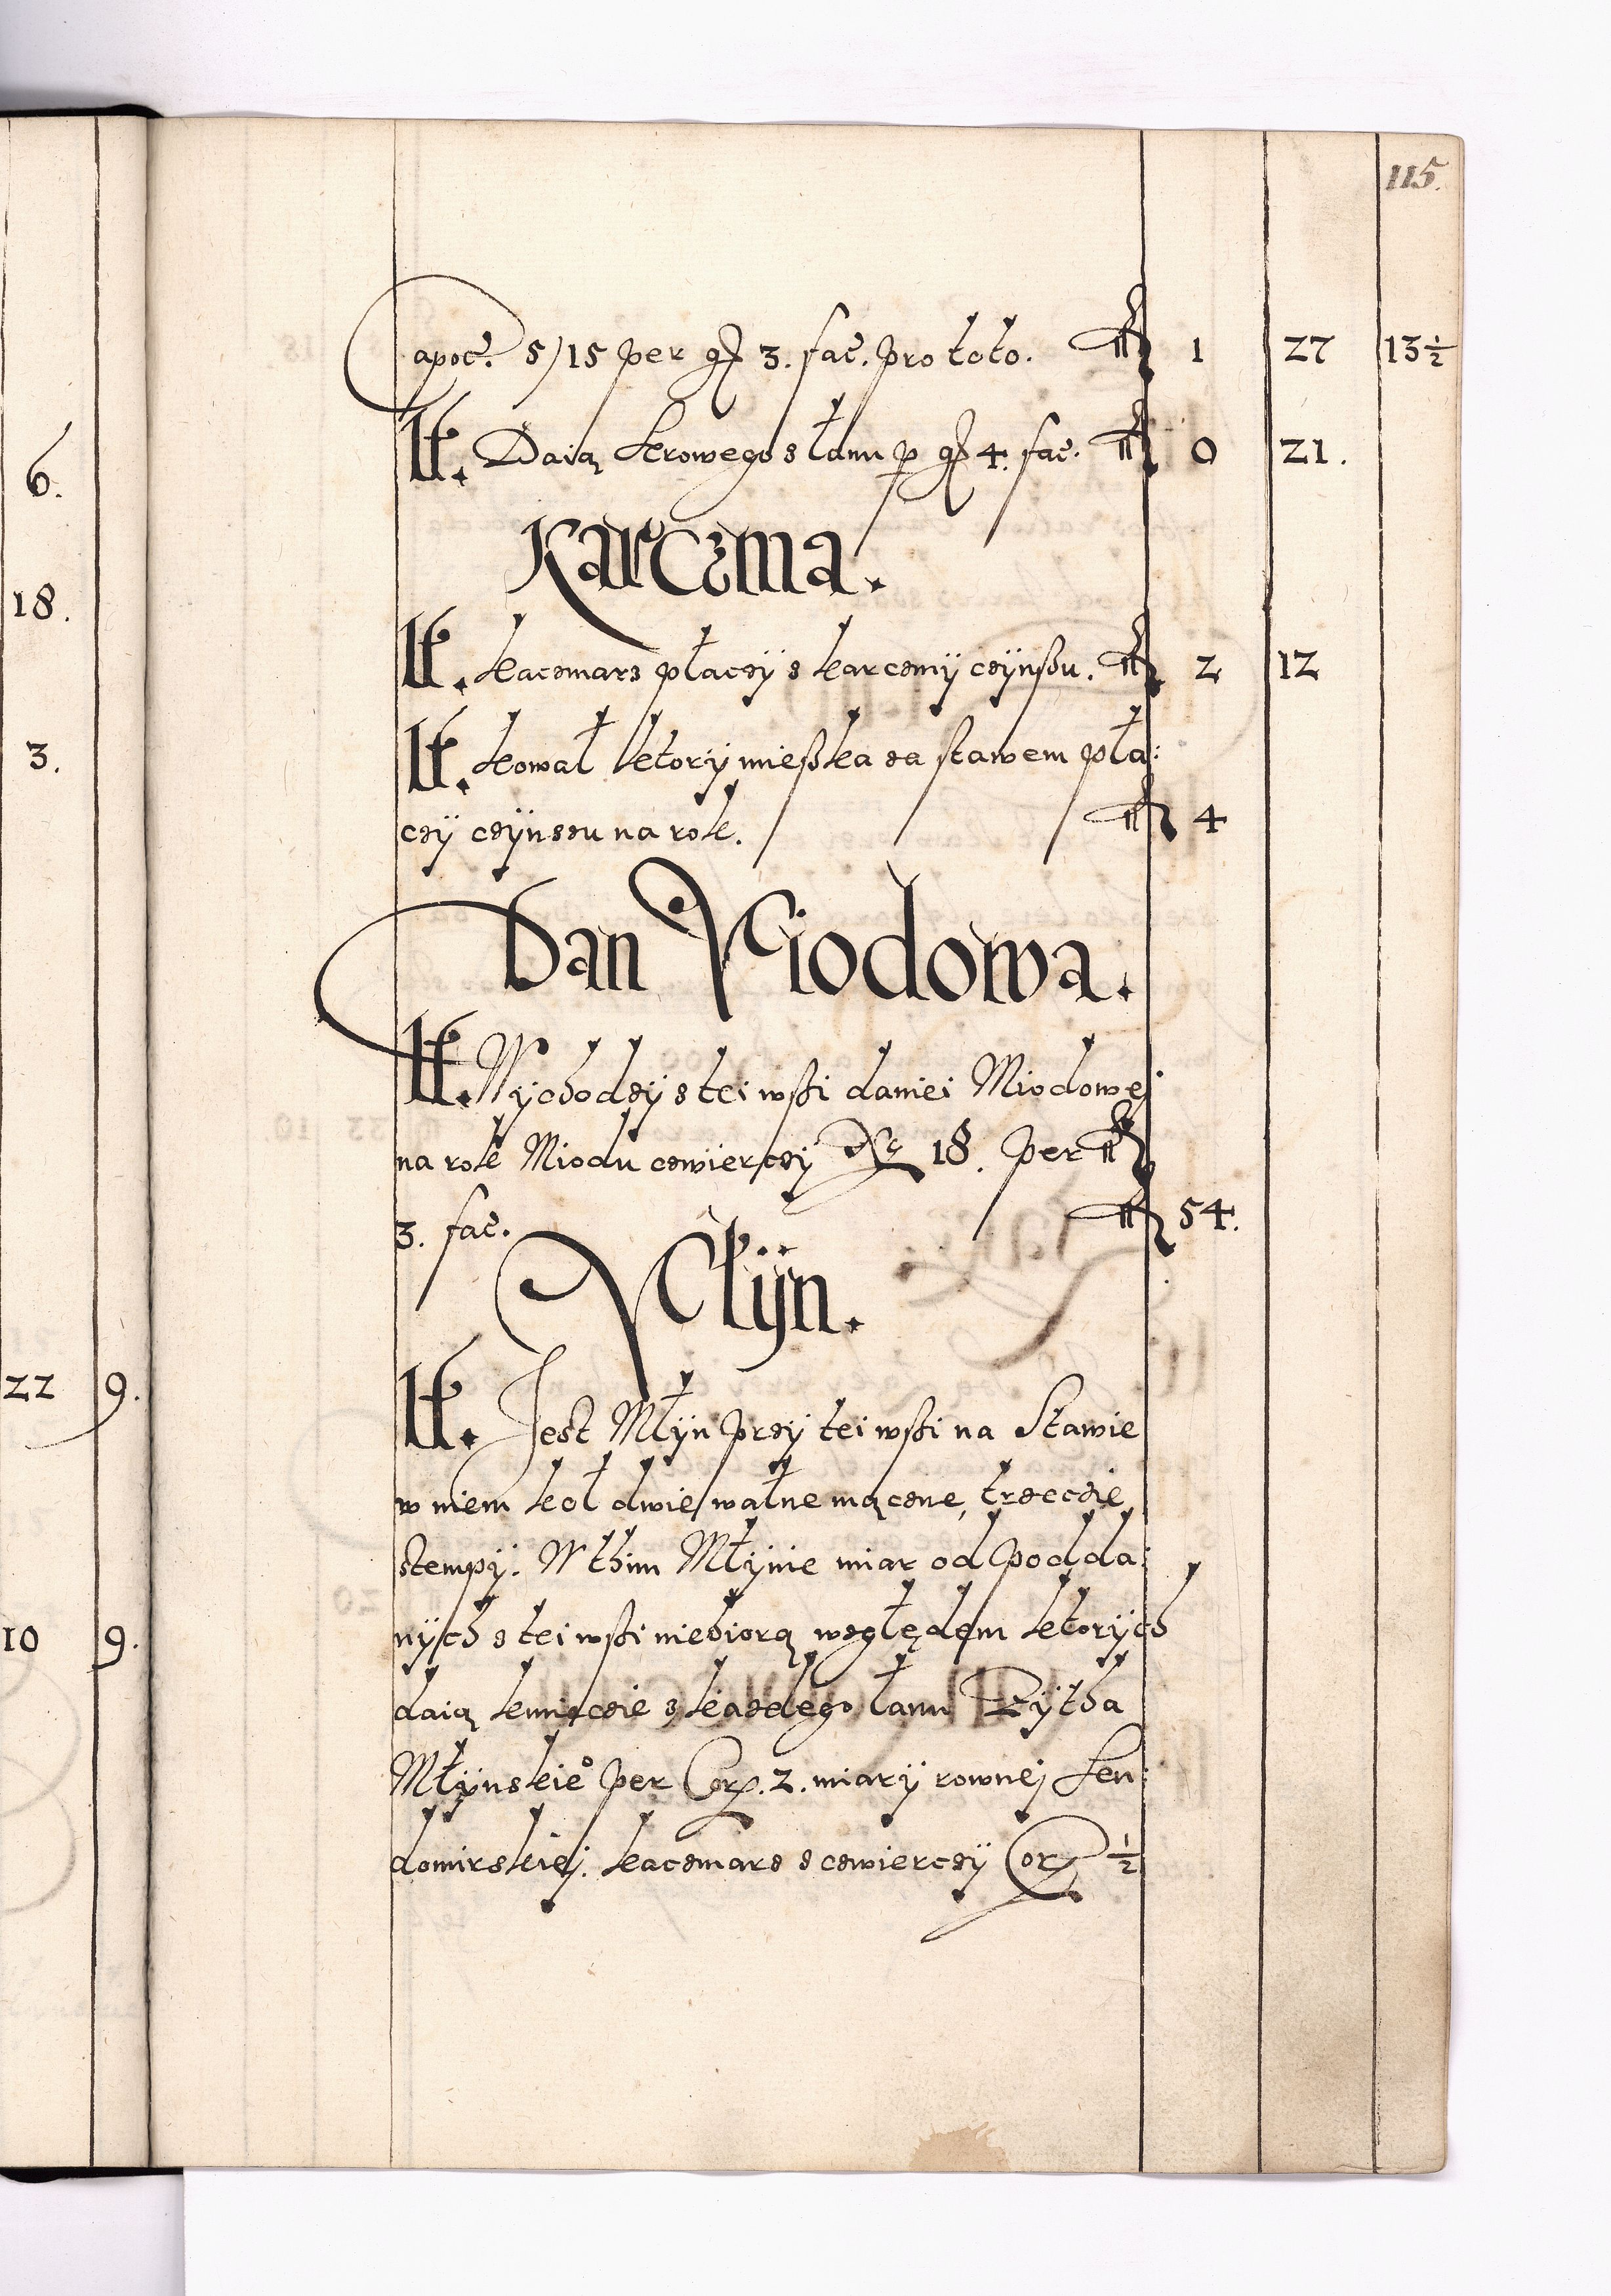 115.
apoč. 5/15 per gr 3. fač. pro toto. fl 1 27 13½
It. Daią krowego z łanu p gr 4. fač. fl 0 21.
Karczma.
It. kaczmarz płaczÿ z karczmÿ czÿnßu. fl 2 12
It. kowal ktorÿ mießka za stawem pła:
czÿ czÿnszu na rok. fl 4
Dan Miodowa.
It. Wychodzÿ z tei wßi daniei Miodowej
na rok Miodu czwierczÿ No 18. per fl
3. fač. fl 54.
Młÿn.
It. Jest Młÿn przÿ tei wßi na Stawie
w niem koł dwie walne mączne, trzeczie
stempÿ. W thim Młÿnie miar od podda:
nÿch z tei wßi niebiorą względem ktorÿch
daią kmieczie z kazdego łanu Zÿtha
Młÿnskieo per Cor. 2. miarÿ rownej Sen:
domirskiej. kaczmarz z czwierczÿ Cor ½
6.
18.
3.
22 9.
10 9.